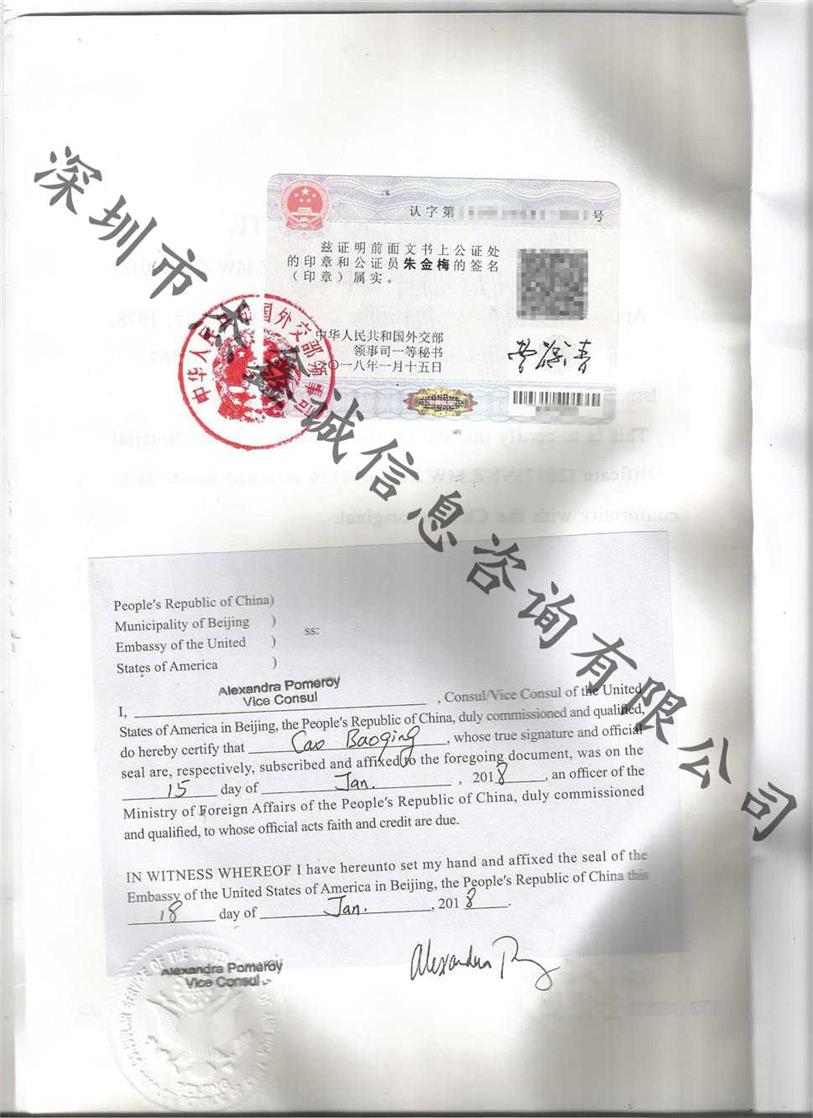 深圳市杰鑫诚信息咨询有限公司
认字第 号
兹证明前面文书上公证处
的印章和公证员朱金梅的签名
(印章)属实。
中华人民共和国外交部
领事司一等秘书
二〇一八年一月十五日
中华人民共和国外交部领事司
People's Republic of China)
Municipality of Beijing )
Embassy of the United ) ss:
States of America )
Alexandra Pomeroy
Vice Consul
I, , Consul/Vice Consul of the United
States of America in Beijing, the People's Republic of China, duly commissioned and qualified,
do hereby certify that Cao Baoqing, whose true signature and official
seal are, respectively, subscribed and affixed to the foregoing document, was on the
15 day of Jan. , 2018, an officer of the
Ministry of Foreign Affairs of the People's Republic of China, duly commissioned
and qualified, to whose official acts faith and credit are due.
IN WITNESS WHEREOF I have hereunto set my hand and affixed the seal of the
Embassy of the United States of America in Beijing, the People's Republic of China this
18 day of Jan. , 2018.
Alexandra Pomeroy
Vice Consul
BEIJING